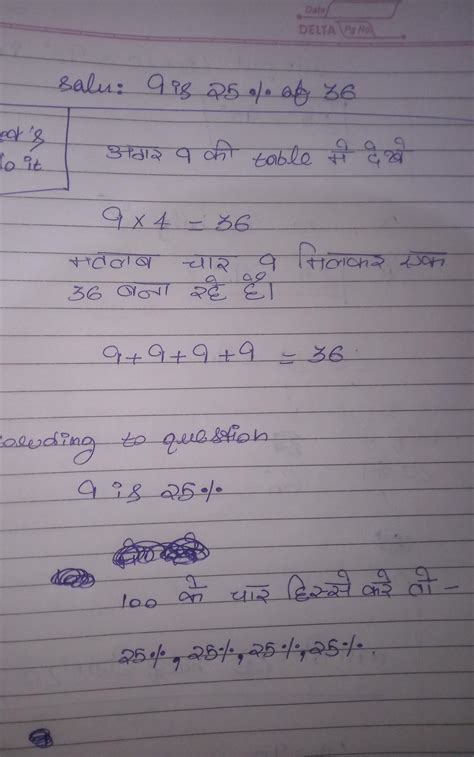 Date
DELTA Pg No.
Solu: 9 is 25% of 36
Let's
do it
अगर 9 की table मे देखे
9 x 4 = 36
मतलब चार 9 मिलकर एक
36 बना रहे है।
9+9+9+9 = 36
According to question
9 is 25%
100 के चार हिस्से करे तो -
25%, 25%, 25%, 25%.